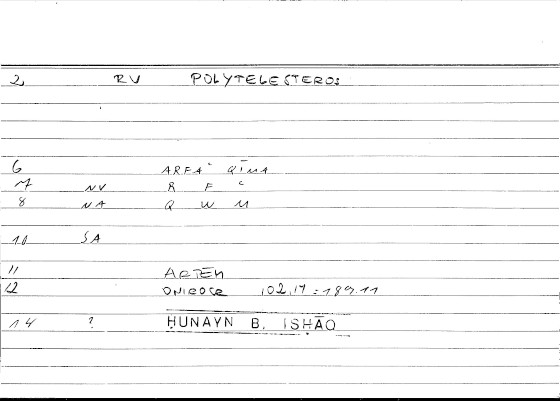 2 RV POLYTELESTEROS
6 ARFAʿ QĪMA
7 NV R F ʿ
8 NA Q W M
10 SA
11 ARTEM
12 ONIROCR 102,17 : 189.11
14 ? ḤUNAYN B. ISḤĀQ